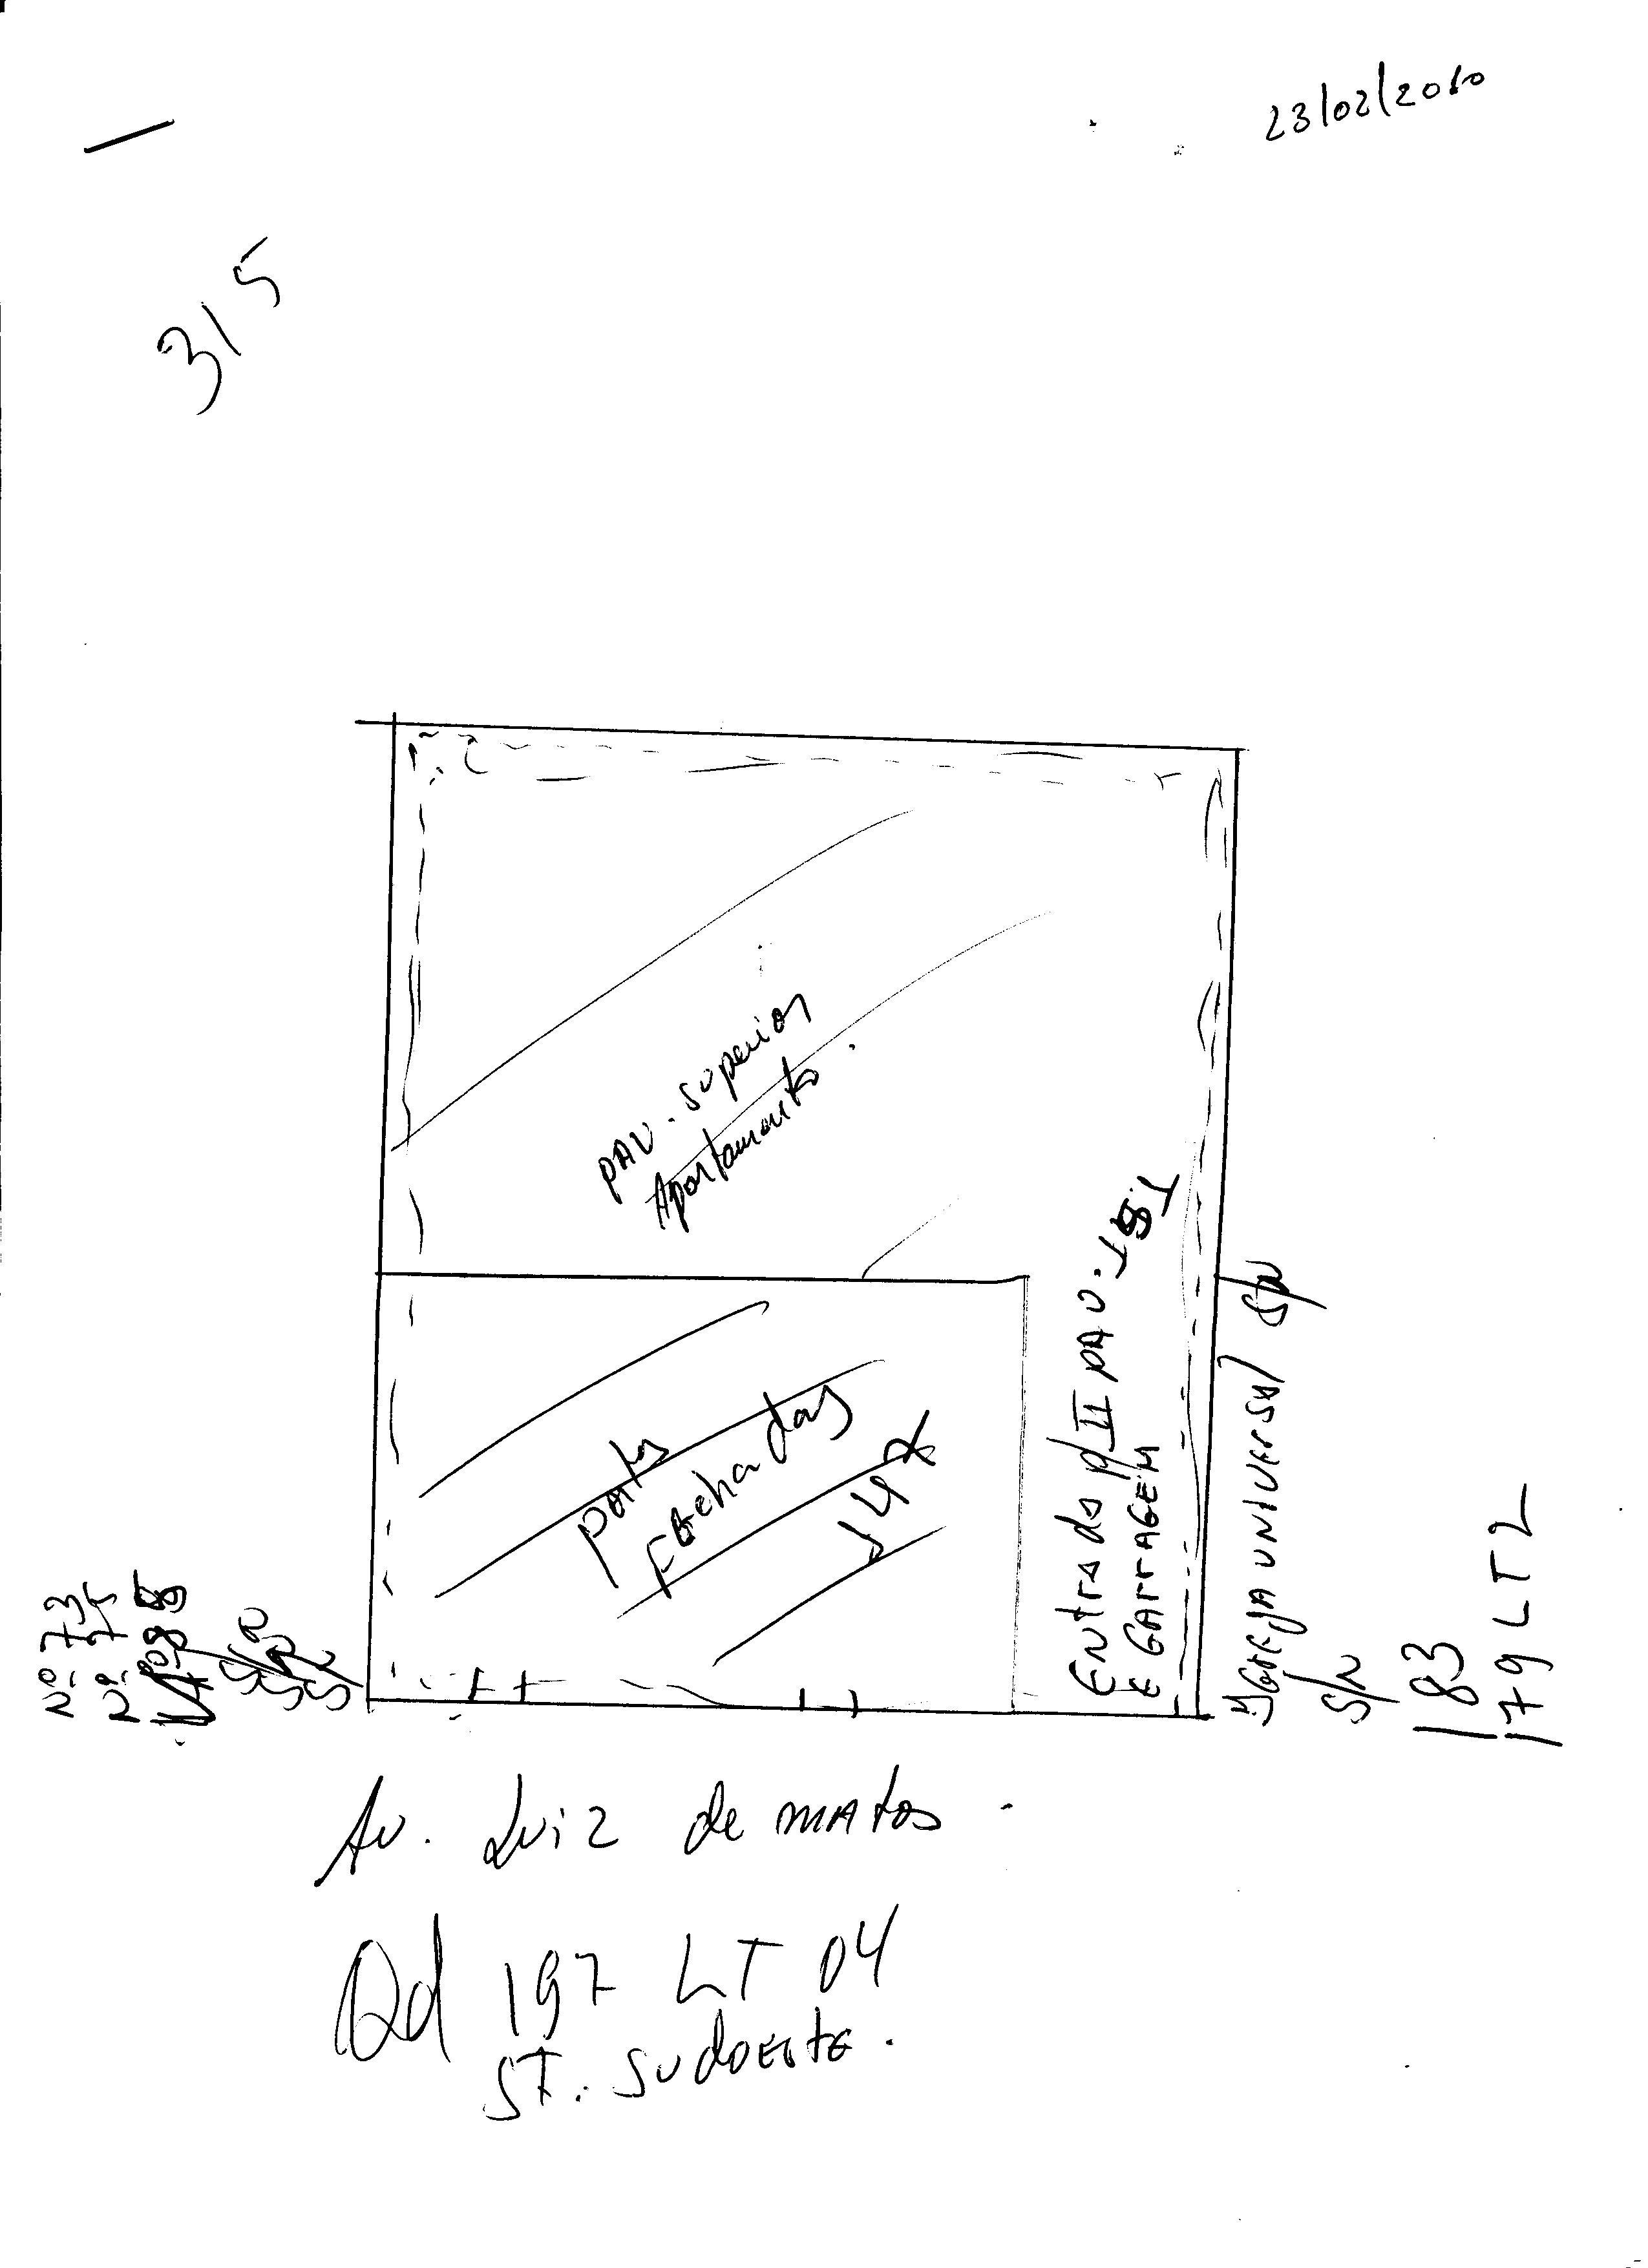 23/02/2010
315
PAV. superior
Apartamento.
portas
fechadas
Entrada p/ II PAV.
E GARRAGEM
IGREJA UNIVERSAL S/N
S/N
183
179 LT 2
Nº. 73
Nº. 75
Av. Luiz de MAtos
Qd 197 LT 04
ST. SUdOEstE.